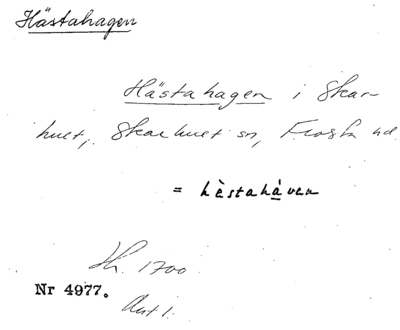 Hästahagen
Hästahagen i Skar-
hult, Skarhult sn, Frosta hd
= hèstahàven
Nr 4977.